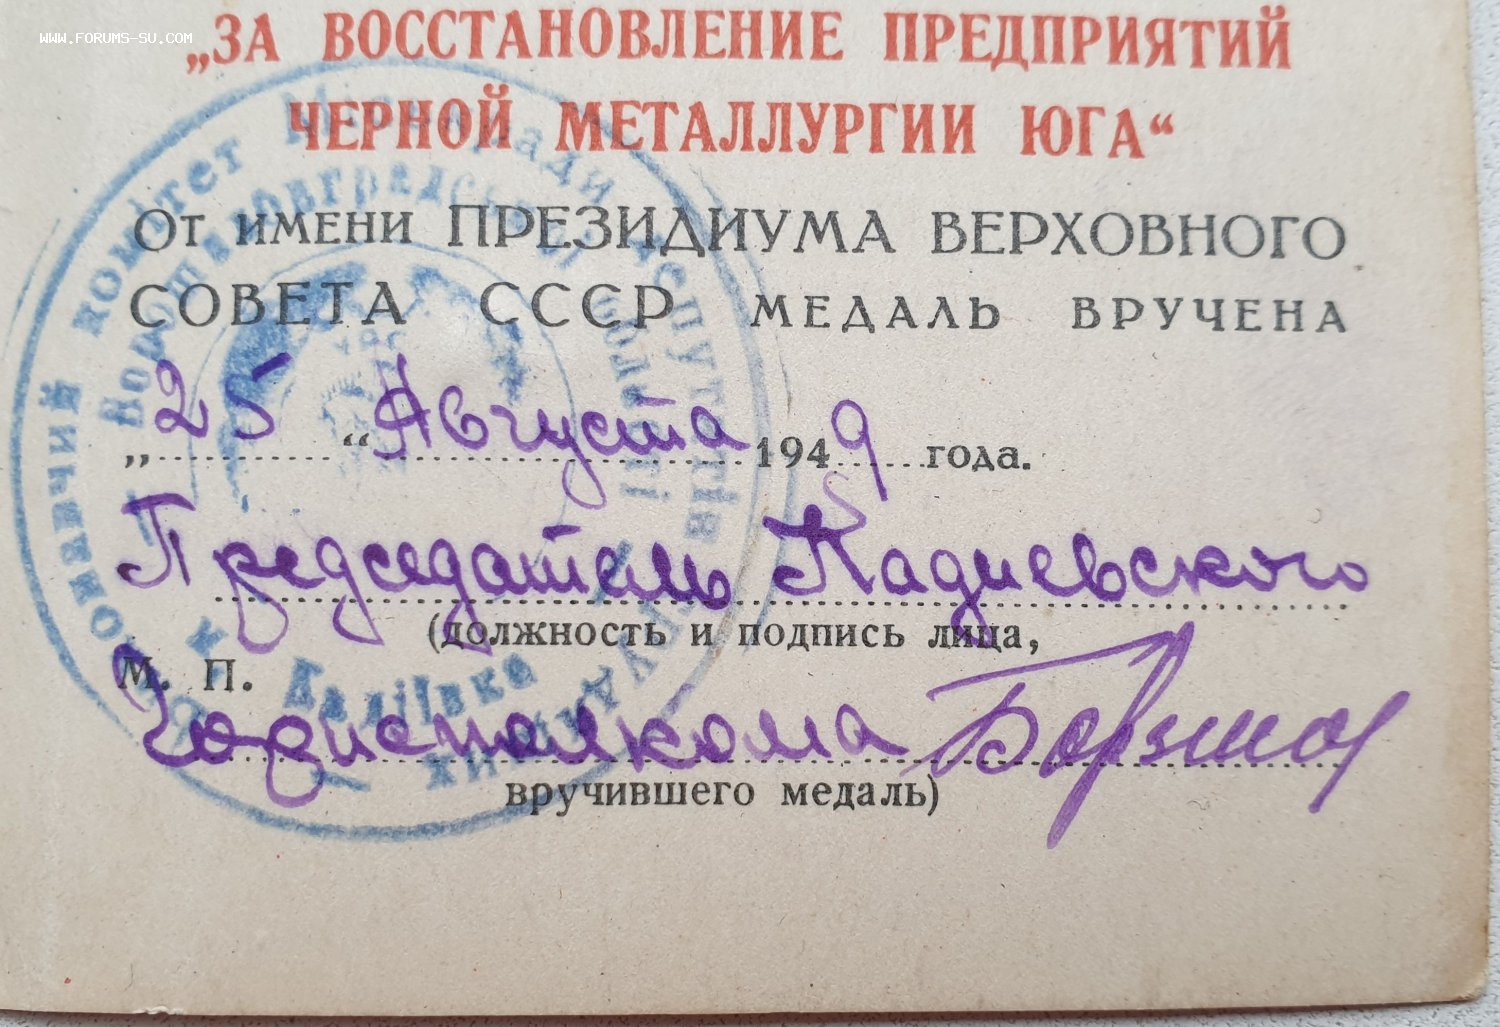 WWW.FORUMS-SU.COM
„ЗА ВОССТАНОВЛЕНИЕ ПРЕДПРИЯТИЙ
ЧЕРНОЙ МЕТАЛЛУРГИИ ЮГА“
От имени ПРЕЗИДИУМА ВЕРХОВНОГО
СОВЕТА СССР МЕДАЛЬ ВРУЧЕНА
„25“ Августа 1949 года.
Председатель Кадиевского
(должность и подпись лица,
М. П.
Горисполкома
вручившего медаль)
комітет
депутатів
трудящих
м. Кадіївка